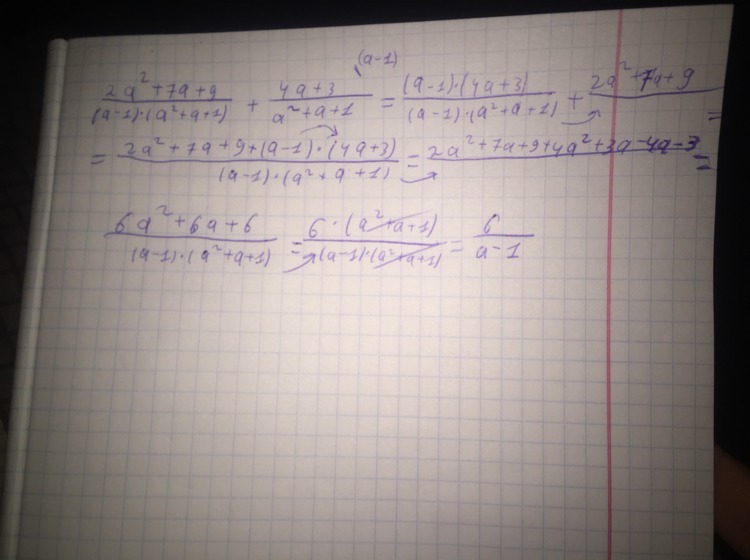 (a-1)
(2a²+7a+9)/((a-1)·(a²+a+1)) + (4a+3)/(a²+a+1) = ((a-1)·(4a+3))/((a-1)·(a²+a+1)) + (2a²+7a+9)/ =
= (2a²+7a+9+(a-1)·(4a+3))/((a-1)·(a²+a+1)) = (2a²+7a+9+4a²+3a-4a-3)/ =
(6a²+6a+6)/((a-1)·(a²+a+1)) = (6·(a²+a+1))/((a-1)·(a²+a+1)) = 6/(a-1)